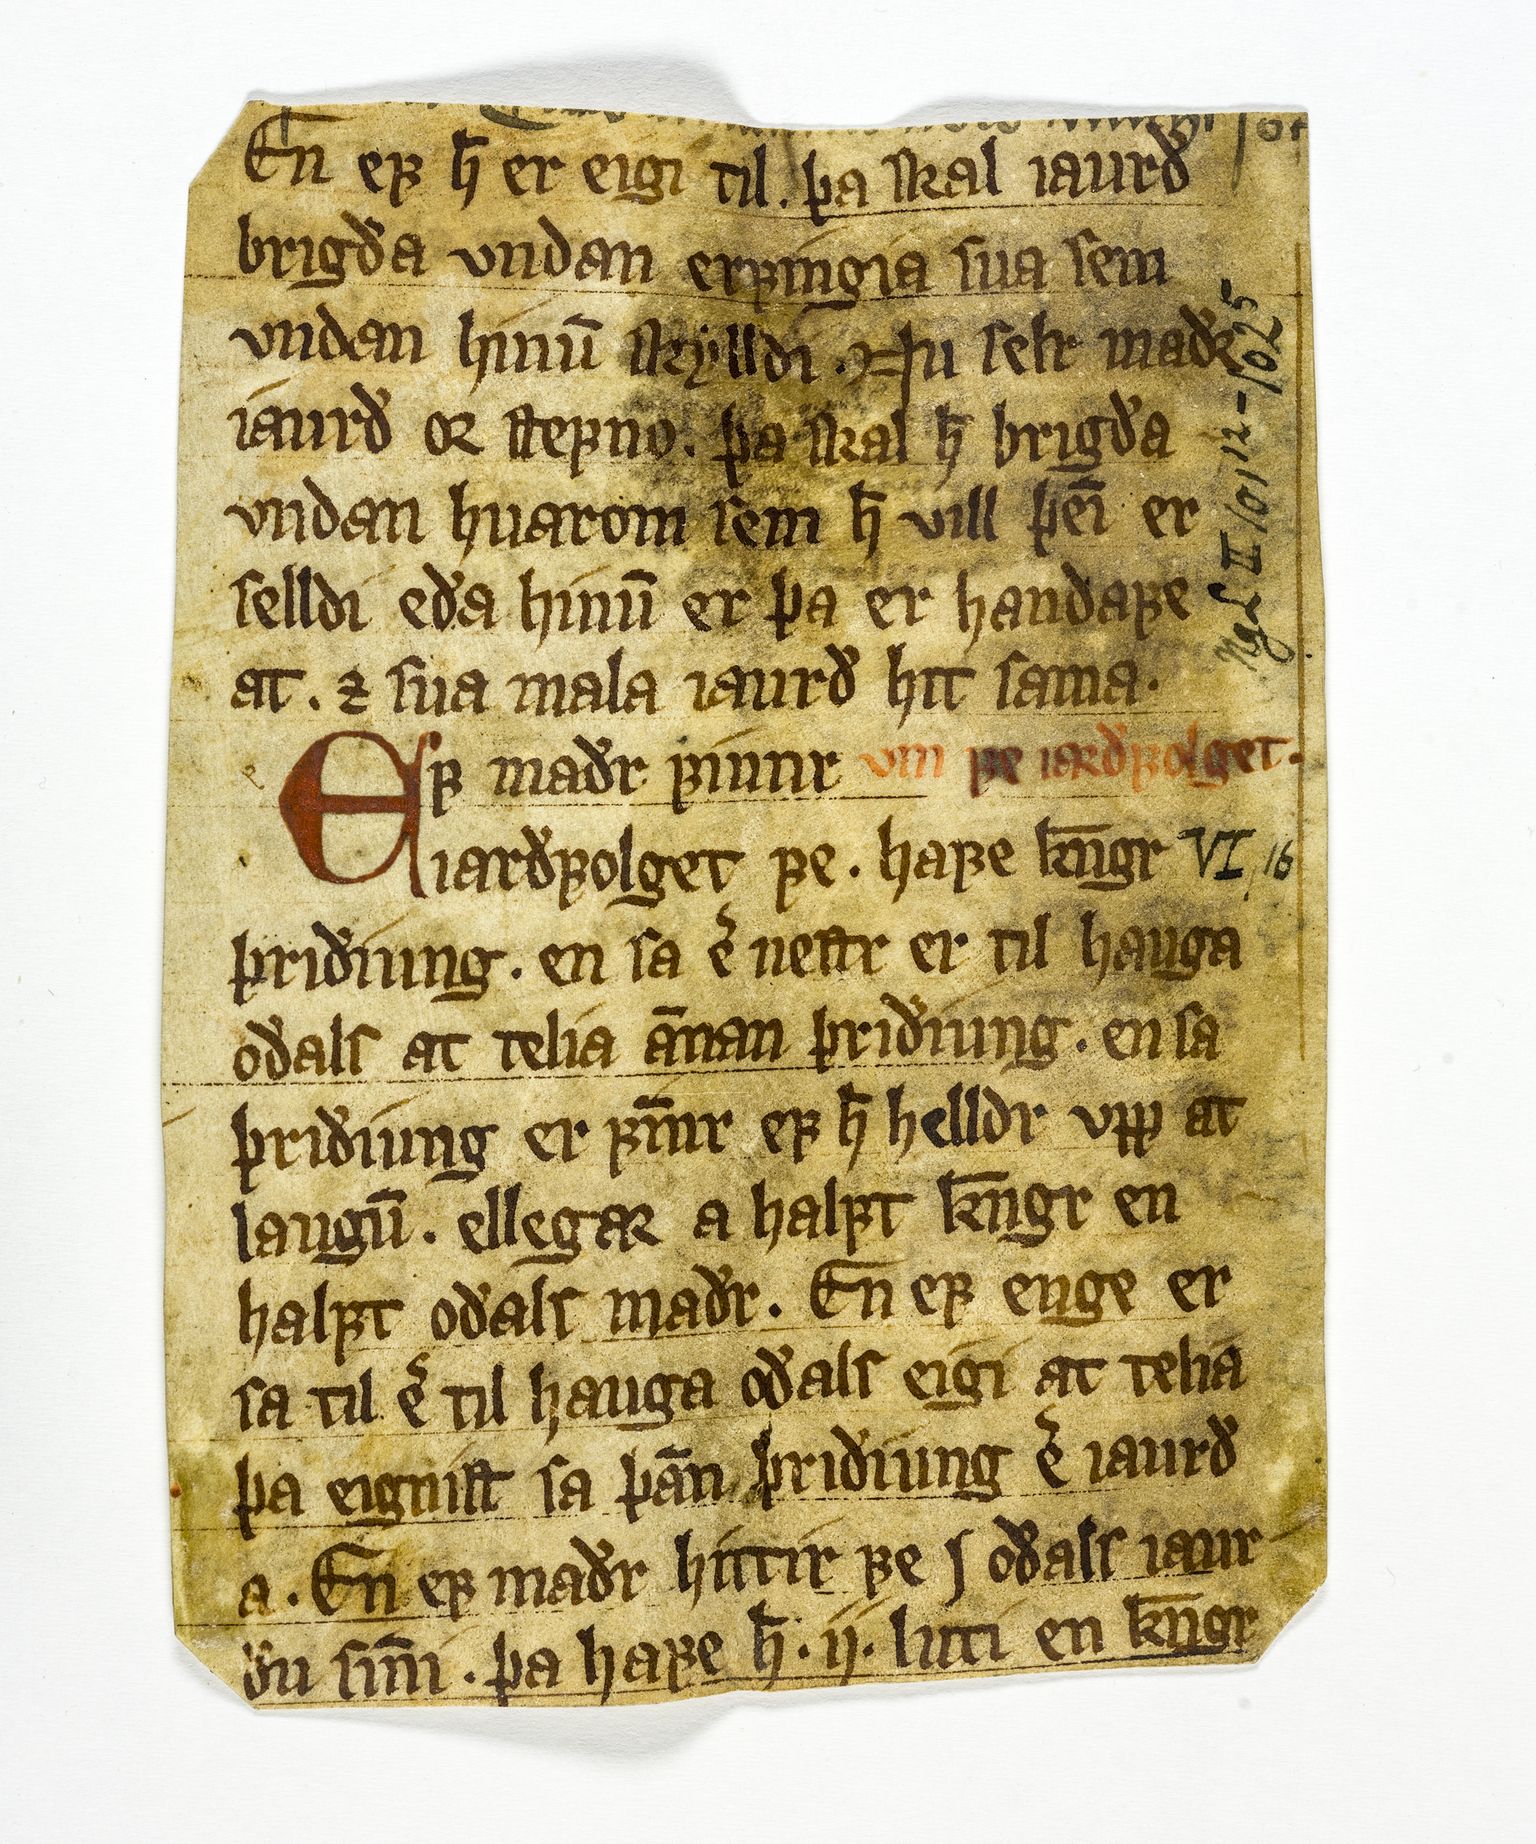 En eꝼ h̄ er eigi til. þa skal iaurð
brigða vndan erꝼingia sua sem
vndan hinū skylldi. Nu selr maðꝛ
iaurð oꝛ steꝼno. þa skal h̄ brigða
vndan huarom sem h̄ vill þeī er
selldi eða hinū er þa er handaꝼe
at. ⁊ sua mala iaurð hit sama.
Eꝼ maðr ꝼinnr vm ꝼe iarðꝼolget.
iarðꝼolget ꝼe. haꝼe kn̄gr VI, 16
þriðiung. en sa e͛ nestr er til hauga
oðals at telia ān̄an þriðiung. en sa
þriðiung er ꝼīnr eꝼ h̄ helldr vpp at
laugū. ellegaꝛ a halꝼt kn̄gr en
halꝼt oðals maðr. En eꝼ enge er
sa til e͛ til hauga oðals eigi at telia
þa eignist sa þān þriðiung e͛ iaurð
a. En eꝼ maðr hittir ꝼe ſ oðals iaur
ðu sīni. þa haꝼe h̄. ij. luti en kn̄gr
NgL II 101¹²-102⁵